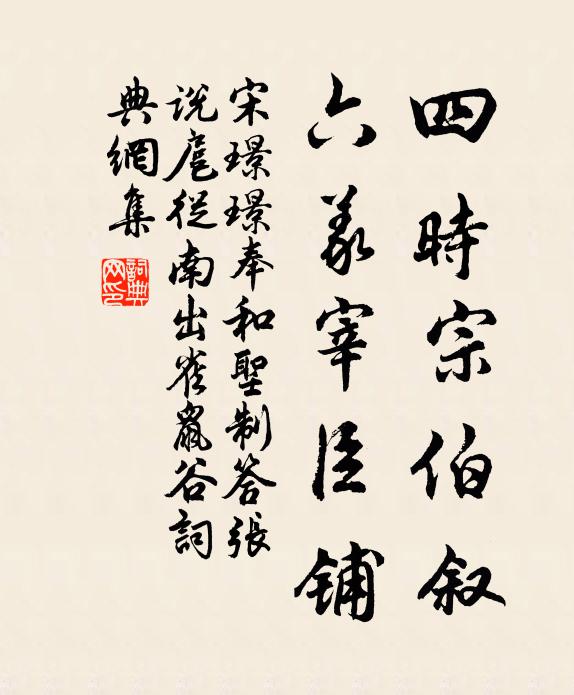 四時宗伯叙
六義宰臣铺
宋璟璟奉和聖制答張
説扈從南出雀鼠谷詞
典網集
詞典
网印